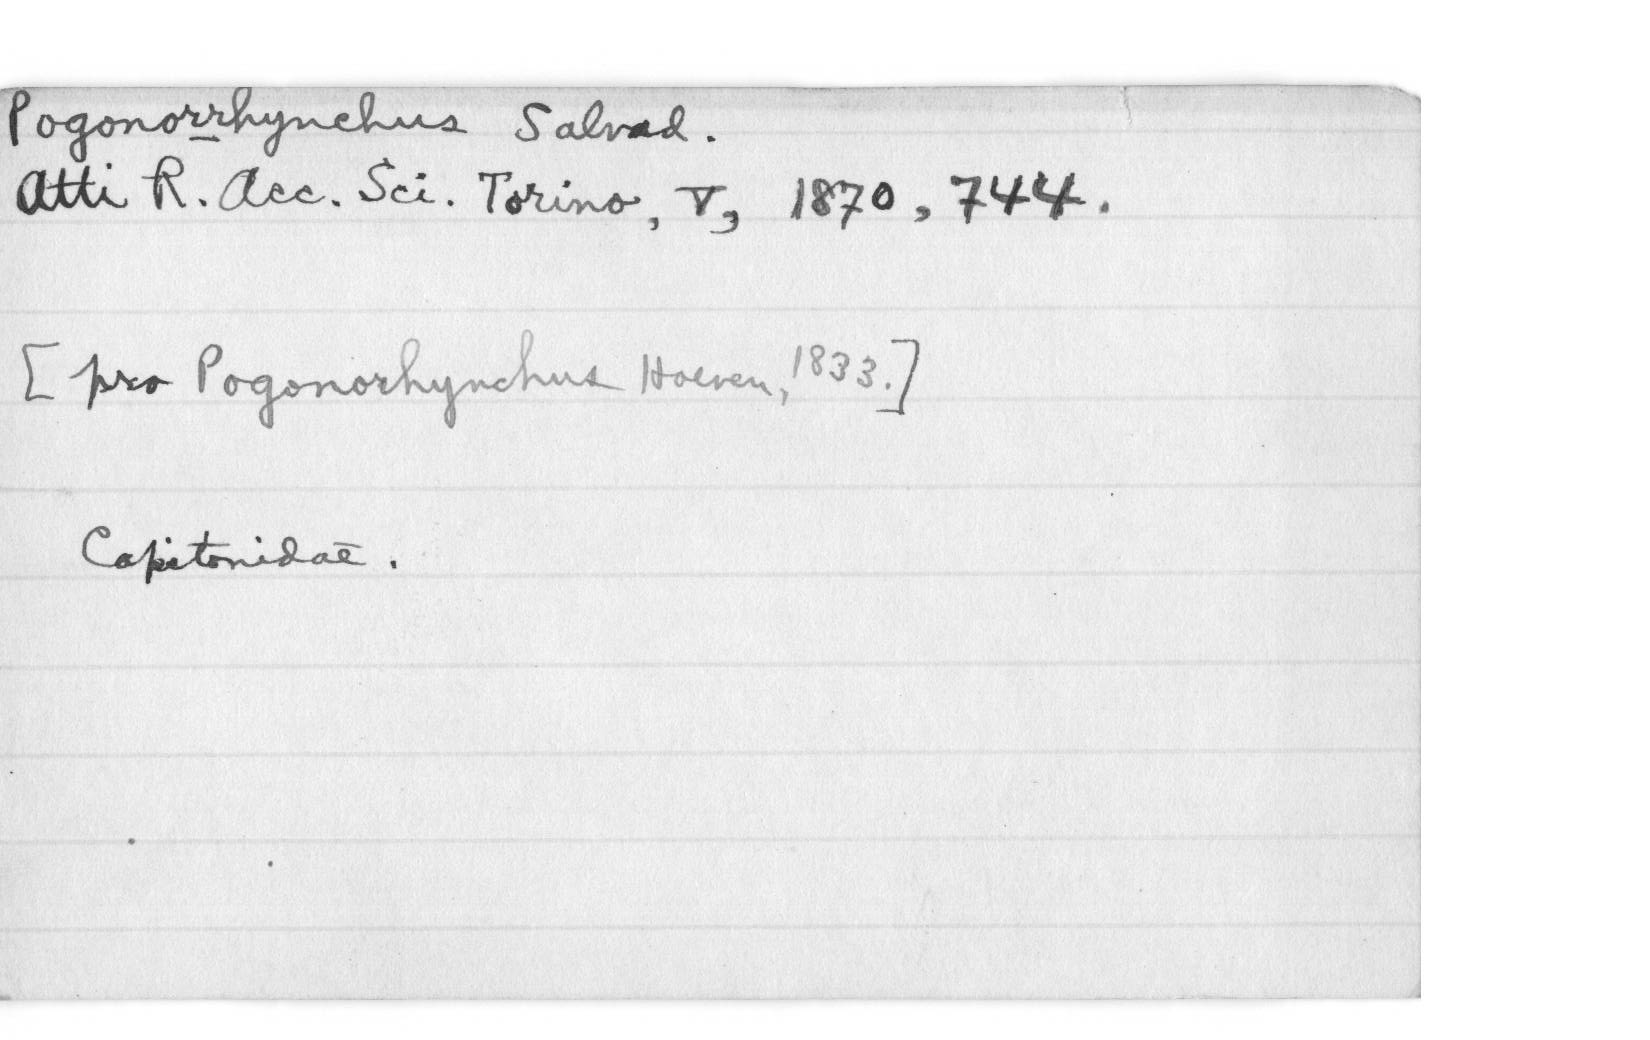 Pogonorrhynchus Salvad.
Atti R. Acc. Sci. Torino, V, 1870, 744.
[pro Pogonorhynchus Hoeven, 1833.]
Capitonidae.